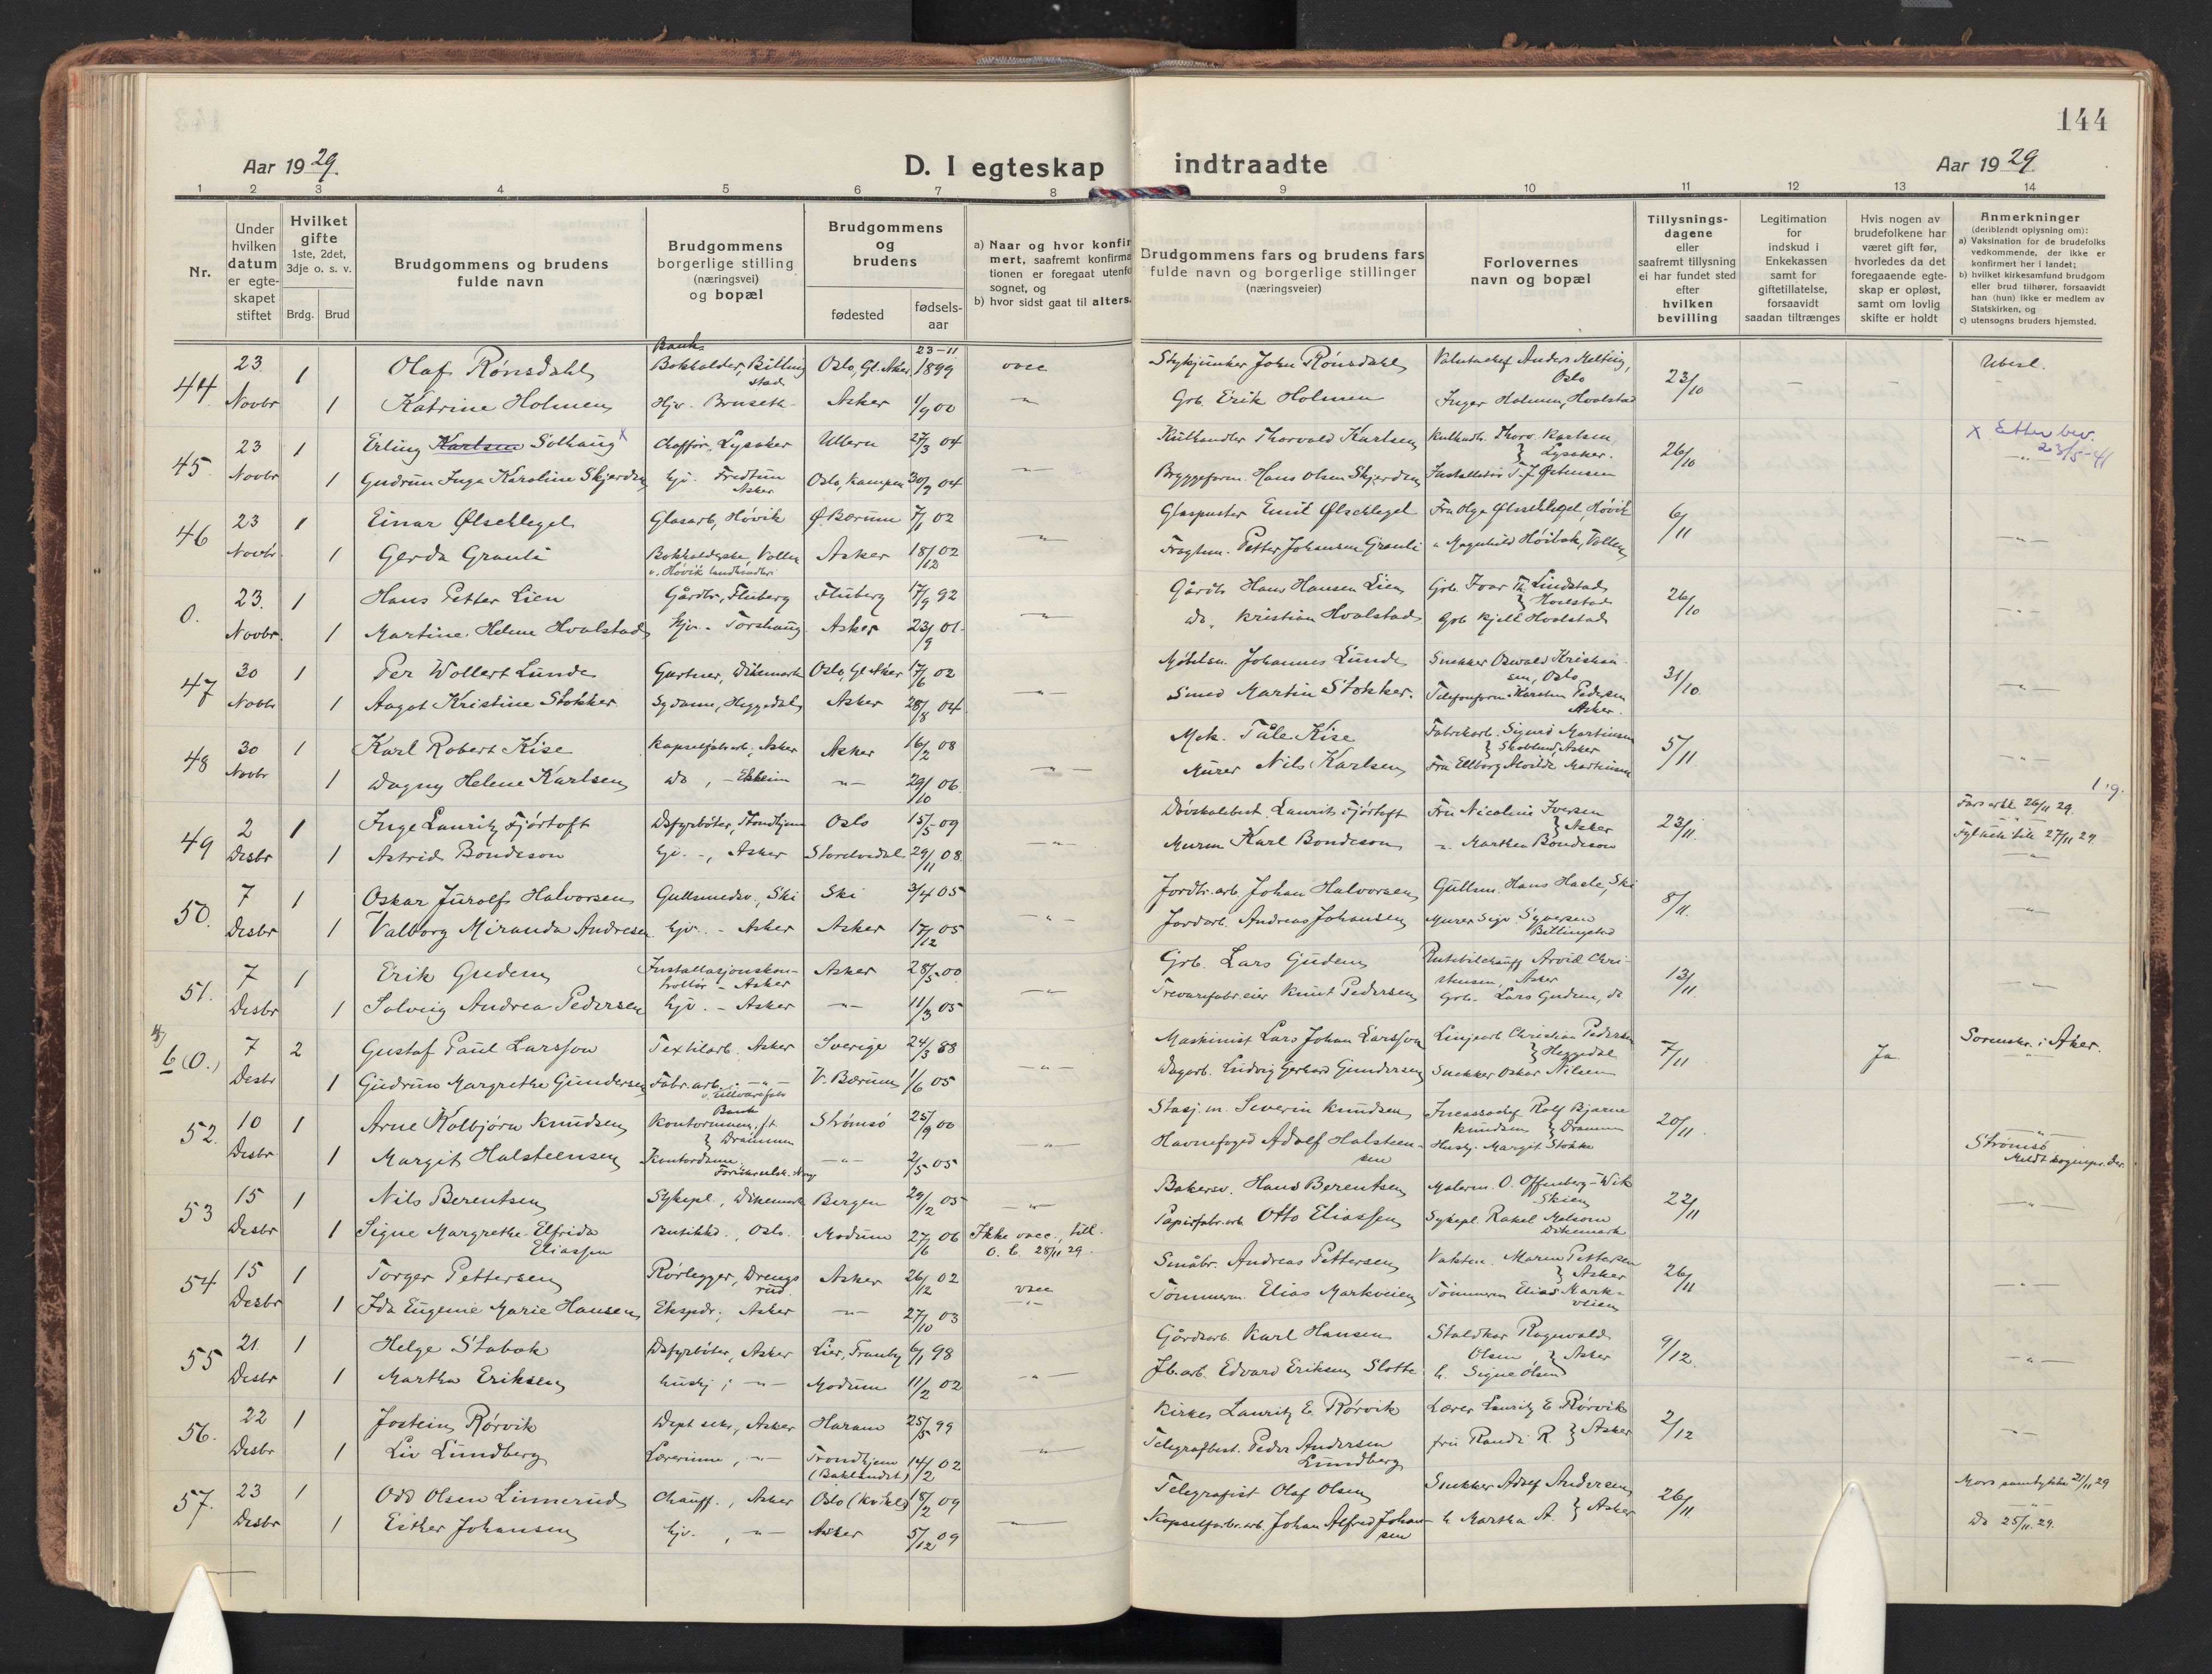 144
Aar 19 29.
D. I egteskap indtraadte
Aar 19 29.
1 2 3 4 5 6 7 8 9 10 11 12 13 14
Nr.
Under hvilken datum er egte-skapet stiftet
Hvilket gifte 1ste, 2det, 3dje o. s. v.
Brdg. Brud
Brudgommens og brudens fulde navn
Brudgommens borgerlige stilling (næringsvei) og bopæl
Brudgommens og brudens
fødested
fødsels-aar
a) Naar og hvor konfir
mert, saafremt konfirma
tionen er foregaat utenfo
sognet, og
b) hvor sidst gaat til alters.
Brudgommens fars og brudens fars fulde navn og borgerlige stillinger (næringsveier)
Forlovernes navn og bopæl
Tillysnings-dagene eller saafremt tillysning ei har fundet sted efter hvilken bevilling
Legitimation for indskud i Enkekassen samt for giftetillatelse, forsaavidt saadan tiltrænges
Hvis nogen av brudefolkene har været gift før, hvorledes da det foregaaende egte-skap er opløst, samt om lovlig skifte er holdt
Anmerkninger (deriblandt oplysning om):
a) Vaksination for de brudefolks vedkommende, der ikke er konfirmert her i landet;
b) hvilket kirkesamfund brudgom eller brud tilhører, forsaavidt han (hun) ikke er medlem av Statskirken, og
c) utensogns bruders hjemsted.
44 23 1 Olaf Rönsdahl Bank Bokholder, Billingstad Oslo, Gl. Aker 23-11 1899 vacc Johan Rönsdahl Anders Melting, Oslo 23/10 – – Ubesl.
Novbr 1 Katrine Holmen Hjv. Bruseth Asker 1/9 00 -"- Grb. Erik Holmen Inger Holmen, Hvalstad
45. 23 1 Erling Karlsen Solhaug x Chaffør, Lysaker Ullern 27/3 04 Kulhandler Thorvald Karlsen Kulhadl. Thorv. Karlsen } Lysaker. 26/10 x Etter bev. 23/5-41
Novbr 1 Gudrun Inga Karoline Skjerden hjv. Fredtun Asker Oslo, Kampen 30/9 04 -"- Hans Olsen Skjerden Installatør T. J. Østensen -"-
46 23 1 Einar Ølschlegel Glasarb, Høvik Ø. Bærum 7/1 02 Glaspuster Emil Ølschlegel Fru Olga Ølschlegel, Høvik 6/11
Novbr. 1 Gerda Granli Bokholderske Vollen v. Høvik landhandleri Asker 18/12 02 -"- Petter Johansen Granli " Magnhild Høibak, Vollen -"-
0. 23. 1 Hans Petter Lien Gårdbr, Fluberg Fluberg 17/9 92 Gårdb. Hans Hansen Lien Grb. Ivar Th. Lindstad } Hvalstad 26/10
Novbr. 1 Martine Helene Hvalstad hjv - Torshaug Asker 23/9 01. -"- do. Kristian Hvalstad Grb Kjell Hvalstad -"-
47 30 1 Per Wollert Lunde Gartner, Dikemark Oslo, Gl. Aker 17/6 02 Johannes Lunde Snekker Oswald Kristiansen, Oslo 31/10
Novbr 1 Aagot Kristine Stokker Sydame, Heggedal Asker 28/8 04 -"- Smed Martin Stokker. Telefonform. Karsten Pedersen Asker. -"-
48 30 1 Karl Robert Kise Kapselfabrarb., Asker Asker 16/2 08 Mek. Tåle Kise Fabrikarb. Sigurd Martinsen } Skoblund, Asker 5/11
Novbr 1 Dagny Helene Karlsen do, - Ekheim -"- 29/10 06. -"- Murer Nils Karlsen Fru Ellborg Alvilde Martinsen -"-
49 2 1 Inge Lauritz Fjörtoft Dsfyrböter, Oslo 15/5 09 Laurits Fjörtoft Fru Nicoline Iversen } Asker 23/11 Fars erkl. 26/11 29.
Desbr 1 Astrid Bondeson hjv. -, Asker Stordvdal 29/11 08. -"- Murer Karl Bondeson -"- Marthea Bondeson 27/11 29
50. 7 1 Oskar Jurolf Halvorsen Gullsmedsv., Ski Ski 3/4 05 Jordbr.arb. Johan Halvorsen Gullsm. Hans Haele, Ski 8/11.
Desbr 1 Valborg Miranda Andresen hjv. - Asker Asker 17/12 05 -"- Jordarb. Andreas Johansen Murer Sigv. Syversen Billingstad -"-
51. 7 1 Erik Gudem Installasjonskontrollør - Asker Asker 28/5 00 Grb. Lars Gudem Rutebilchauff Arvid Christensen, Asker 13/11.
Desbr 1 Solveig Andrea Pedersen hjv. - Asker -"- 11/3 05 -"- Trevarefabr.eier Knut Pedersen Grb. Lars Gudem, do -"-
6 (0.) 7 2 Gustaf Paul Larsson Textilarb. Asker Sverige 24/3 88 Maskinist Lars Johan Larsson Linjearb Christian Pedersen } Heggedal 7/11 Ja Sorenskr. i Aker.
Desbr 1 Gudrun Margrethe Gundersen Fabr.arb. -"- v. Ullvarefabr V. Bærum 1/6 05 -"- Dagarb. Ludvig Gerhard Gundersen Snekker Oskar Nilsen
52. 10 1 Arne Kolbjørn Knudsen Bank Kontormann, ft } Drammen Strømsø 25/9 00 Stasj.m. Severin Knudsen Incassochef Rolf Bjarne Knudsen } Drammen 20/11
Desbr 1 Margit Halsteensen Kontordame -"- 2/5 05 -"- Havnefoged Adolf Halsteensen Husbj. Margit Stokke Strømsø Meldt sogneprs. der.
53 15 1 Nils Berentsen Sykepl, Dikemark Bergen 29/12 05 -"- Bakersv. Hans Berentsen Malerm. O. Offenberg-Wik Skien 22/11
Desbr 1 Signe Margrethe Elfrida Eliassen Butikkd., Oslo. Modum 27/6 06 Ikke vacc., till. o. b. 28/11 29. Papirfabr.arb Otto Eliassen Sykepl. Rakel Melsom Dikemark -"-
54 15 1 Torger Pettersen Rörlegger, Drengsrud Asker 26/12 02 vacc Småbr. Andreas Pettersen Vaktm. Martin Pettersen } Asker 26/11
Desbr 1 Ida Eugenie Marie Hansen Ekspdr., Asker -"- 27/10 03 -"- Tömmerm. Elias Markveien Tömmerm Elias Markveien -"-
55 21. 1 Helge Stabæk Dsfyrböter, Asker Lier, Tranby 6/1 98 Gårdsarb. Karl Hansen Staldkar Ragnvald Olsen } Asker 9/12
Desbr 1 Martha Eriksen hushj; -"- Modum 11/2 02 -"- Fb.arb. Edvard Eriksen Slotte h. Signe Olsen -"-
56. 22 1 Jostein Rørvik Dept sekr, Asker Haram 25/5 99 Kirkes. Lauritz E. Rørvik Lærer Lauritz E Rørvik 2/12
Desbr 1 Liv Lundberg Lærerinne, -"- Trondhjem (Baklandet) 14/2 02 -"- Telegrafbest. Peder Andersen Lundberg fru Randi R. } Asker -"-
57. 23 1 Odd Olsen Linnerud Chauff., Asker Oslo 18/2 09 Telegrafist Olaf Olsen Snekker Adolf Andersen 26/11 Mors samtykke 21/11 29
Desbr 1 Esther Johansen hjv., -"- Asker 5/12 09 -"- Kapselfabr.arb. Johan Alfred Johansen h. Martha A. } Asker Do 25/11 29.